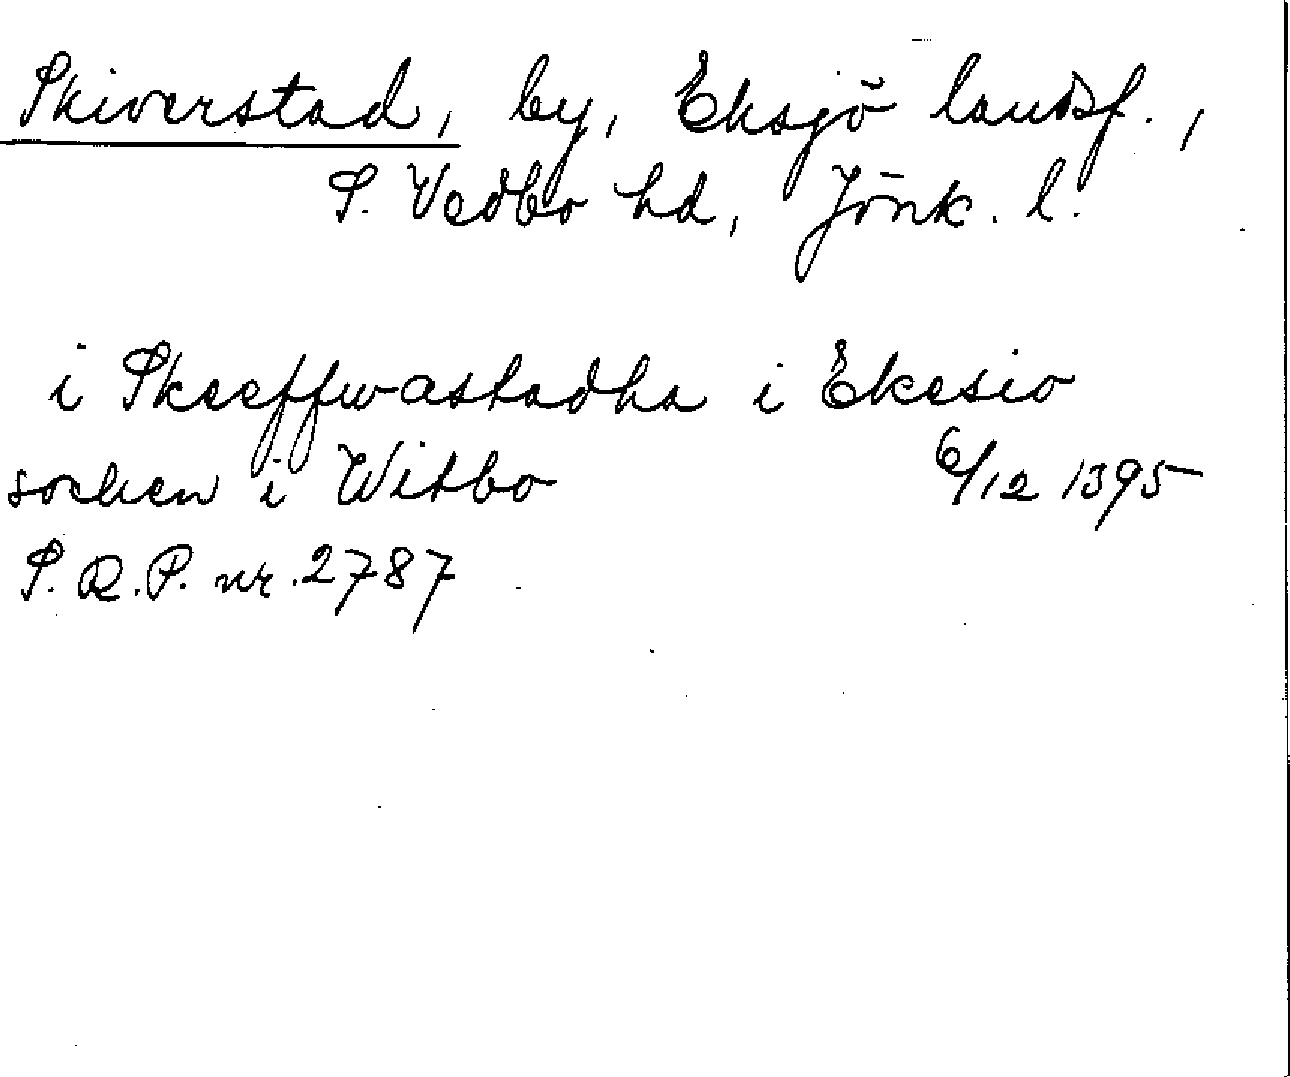 Skiverstad, by, Eksjö landsf.,
S. Vedbo hd, Jönk. l.
i Skeeffwastadha i Ekesio
socken i Witbo 6/12 1395
S.R.P. nr. 2787